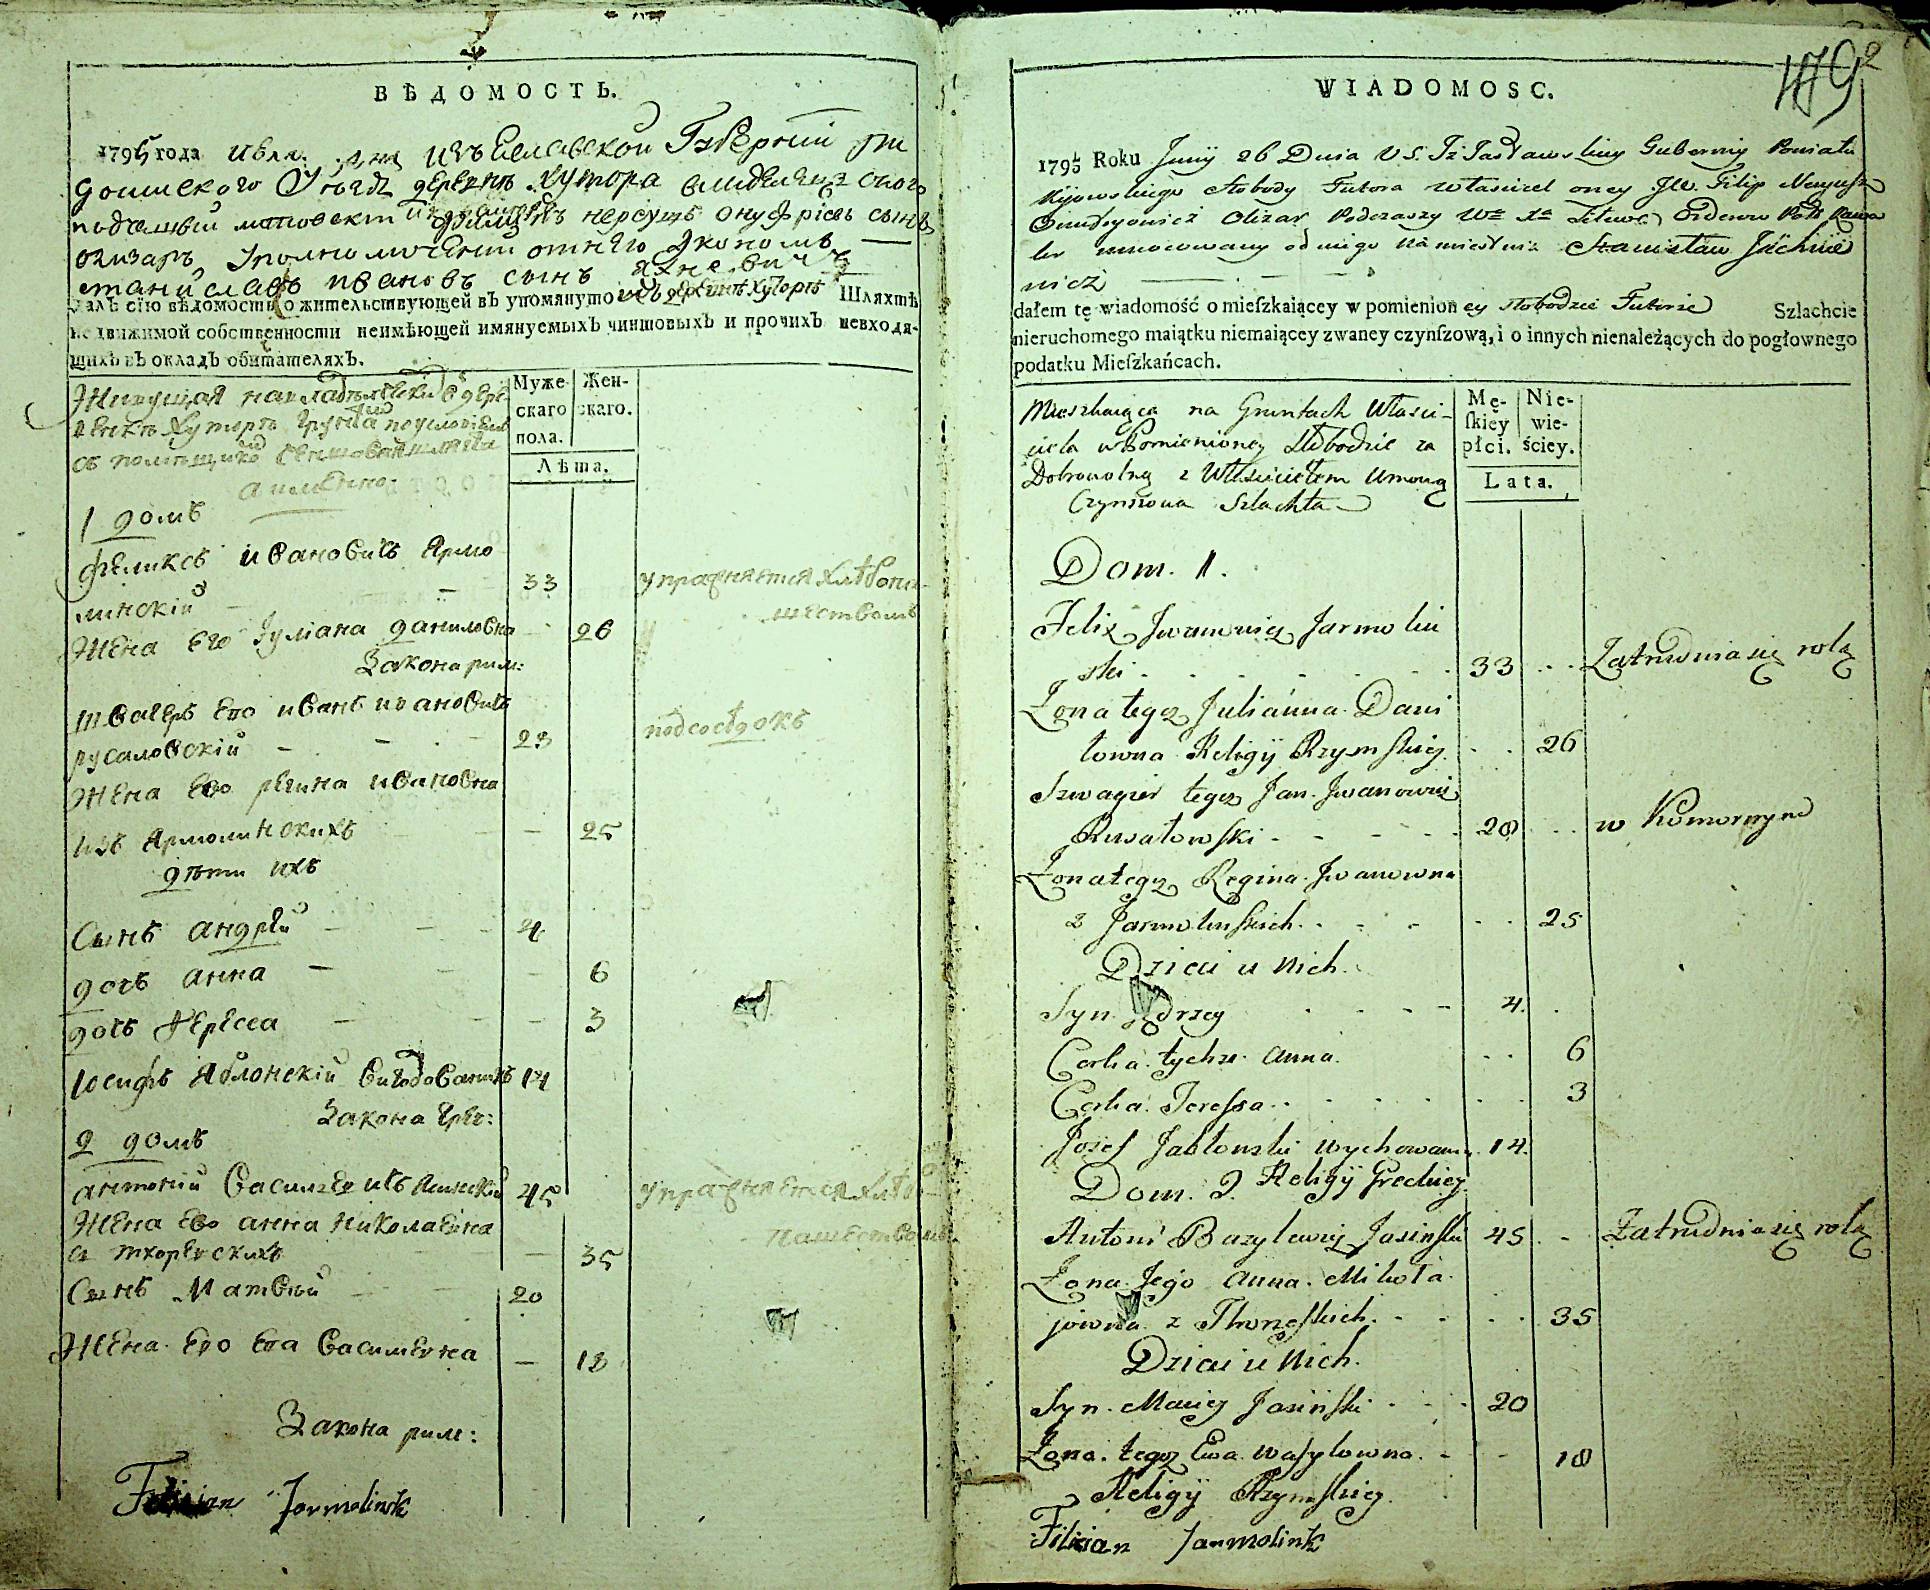 ВѢДОМОСТЬ.
1795 года Июля дня Изъ Еславской Губернїи
уѣзда деревнѣ Хутора
подчашый литовскїй нерсушъ онуфрїевъ сынъ
олизаръ уполномоченный отнего Экономъ
станиславъ ивановъ сынъ яхневичъ
далъ сїю вѣдомость о жительствующей въ упомянутой деревнѣ Хуторѣ Шляхтѣ
недвижимой собственности неимѣющей имянуемыхъ чиншовыхъ и прочихъ невходя-
щихъ въ окладъ обитателяхъ.
Живущая навладѣлческихъ въ дере
внѣ Хуторѣ грунтахъ поусловїемъ
съ помѣщикомъ чиншовая шляхта
а именно.
Муже-
скаго
пола.
Жен-
скаго.
Лѣта.
1 домъ
феликсъ ивановичъ Ярмо
линскїй - - 33 упражняется хлѣбопа-
шествомъ
Жена его Іулїана даниловна 26
Закона рим:
швагеръ его иванъ ивановичъ
русаловскїй - - - 28 подсосѣдокъ
Жена его регина ивановна
изъ Ярмолинскихъ - - - 25
дѣти ихъ
Сынъ андрей - - - 4
дочь анна - - - 6
дочь тересса - - - 3
Іосифъ Яблонскїй 14
Закона греч:
2 домъ
антонїй Васильевичъ Ясинскїй 45 упражняется хлѣбо-
пашествомъ
Жена его анна николаевна
- - 35
Сынъ Матвѣй - - 20
Жена его ева васильевна - 18
Закона рим:
Felician Jarmolinsk
WIADOMOSC.
179 2
1795 Roku Junij 26 Dnia V S. Iz Jasławskiey Gubernij Powiatu
Kijowskiego słobody Futora własciciel oney JW. Filip Neryusz
Onufryowicz Olizar Podczaszy Wo Xo Litews. Orderow Polsk Kawa
ler umocowany odniego Namiestnik Stanisław Jachnie
wicz
dałem tę wiadomość o mieſzkaiącey w pomienioney słobodzie Futorze Szlachcie
nieruchomego maiątku niemaiącey zwaney czynſzową, i o innych nienależących do pogłownego
podatku Mieſzkańcach.
Mieszkaiąca na Gruntach Właści-
ciela w Pomienioney Słobodzie za
Dobrowolną z Właścicielem Umową
Czynszowa Szlachta
Mę-
ſkiey
płci.
Nie-
wie-
ściey.
Lata.
Dom. 1.
Felix Jwanowicz Jarmolin
ski - - - - - 33 - - Zatrudnia się rolą
Żona tegoż Julianna Dani
łowna Religij Rzymſkiey - - 26
Szwagier tegoż Jan Jwanowicz
Rusałowſki - - - - 28 - - w Komornym
Żona tegoż Regina Jwanowna
z Jarmolinſkich - - - - 25
Dzieci u Nich.
Syn drzey - - - - 4.
Corka tychże Anna. - - 6
Corka Teressa - - - - 3
Jozef Jabłonski Wychowaniec 14.
Dom. 2. Religij Greckiey
Antoni Bazylewicz Jasinſki 45 - - Zatrudnia się rolą
Żona Jego Anna Mikoła
jowna z - - - - 35
Dzieci u Nich.
Syn Maciey Jasinſki - - - 20
Żona tegoż Ewa Wasylowna - - 18
Religij Rzymſkiey
Filician Jarmolinsk